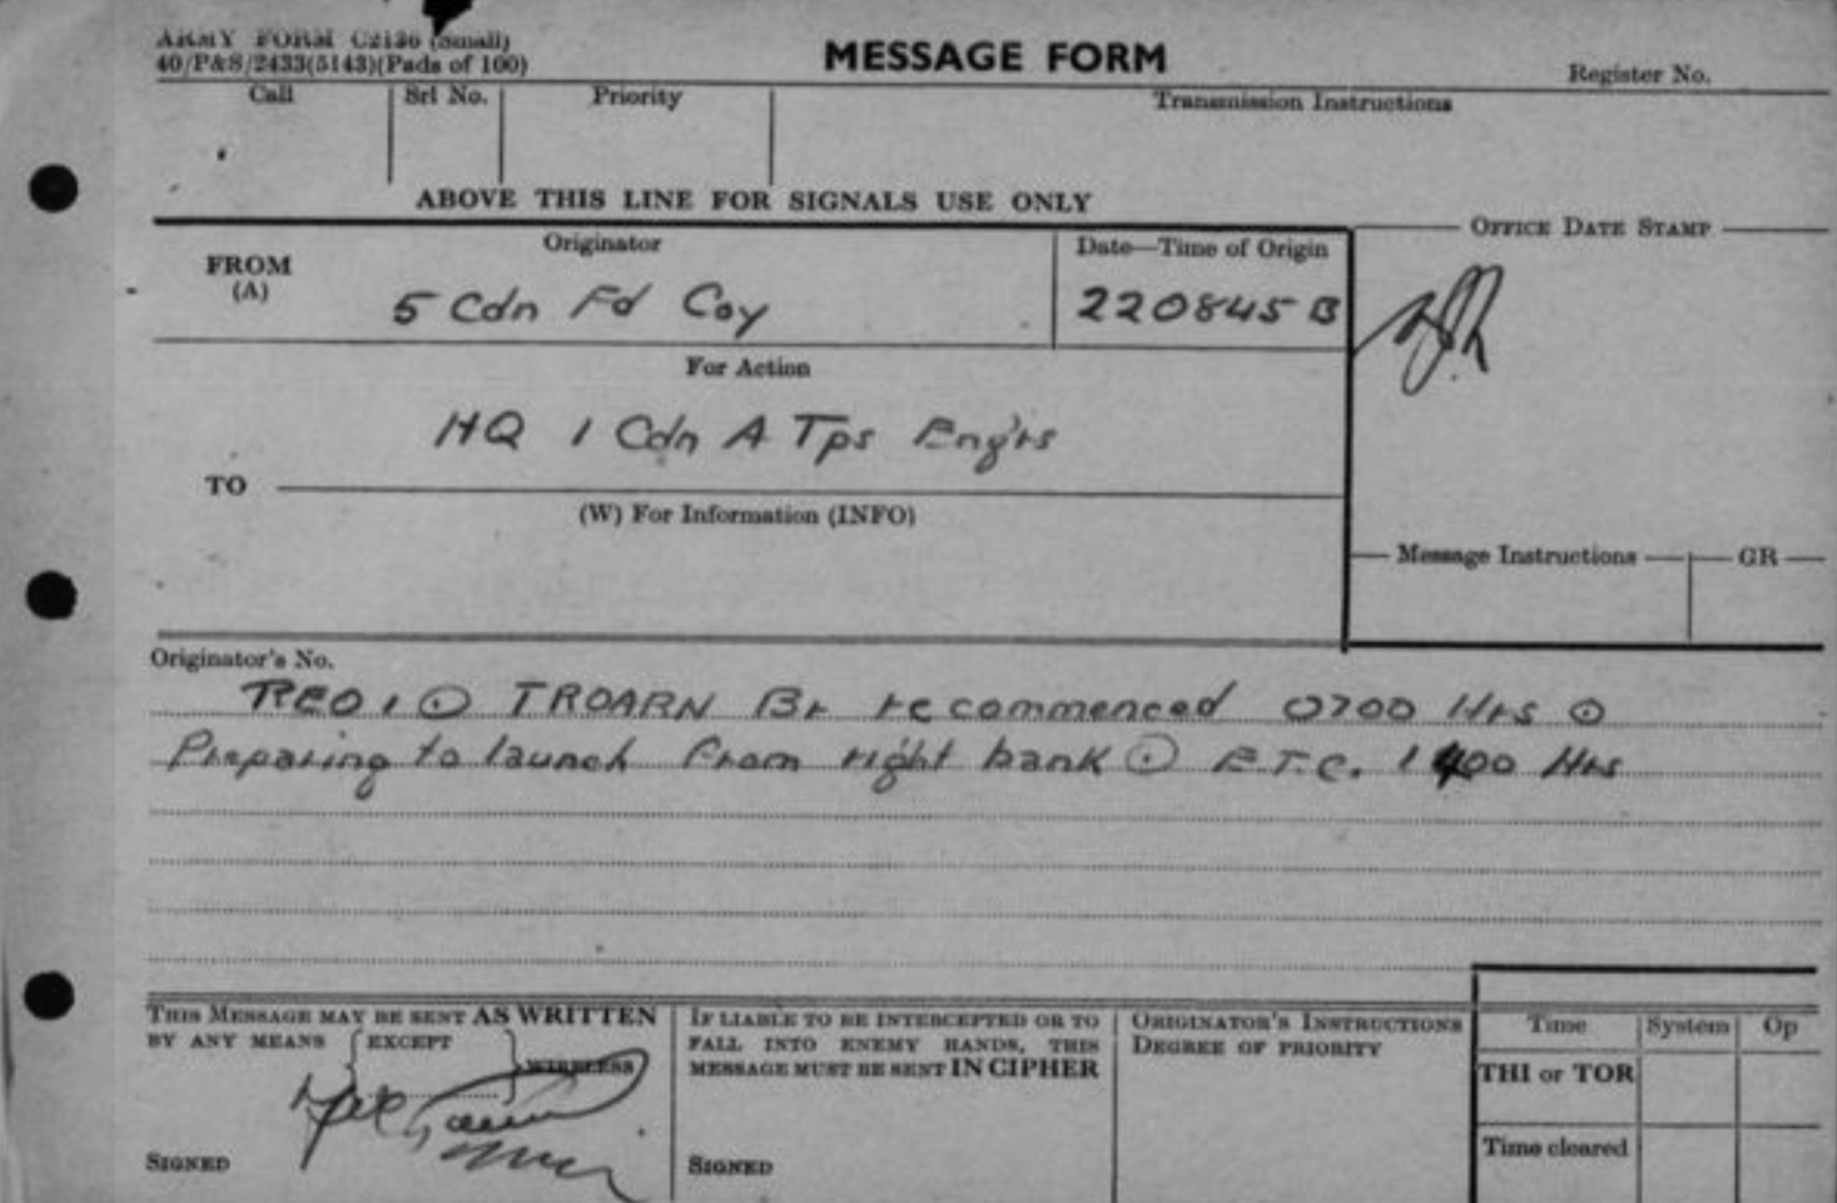 ARMY FORM C2136 (Small)
40/P&S/2433(5143)(Pads of 100)
MESSAGE FORM
Register No.
Call Srl No. Priority Transmission Instructions
ABOVE THIS LINE FOR SIGNALS USE ONLY
OFFICE DATE STAMP
FROM
(A)
Originator
Date—Time of Origin
5 Cdn Fd Coy
220845 B
For Action
HQ 1 Cdn A Tps Engrs
TO
(W) For Information (INFO)
Message Instructions GR
Originator's No.
REO 1 ⊙ TROARN Br recommenced 0700 Hrs ⊙
Preparing to launch from right bank ⊙ E.T.C. 1400 Hrs
THIS MESSAGE MAY BE SENT AS WRITTEN
BY ANY MEANS { EXCEPT } WIRELESS
SIGNED
IF LIABLE TO BE INTERCEPTED OR TO
FALL INTO ENEMY HANDS, THIS
MESSAGE MUST BE SENT IN CIPHER
SIGNED
ORIGINATOR'S INSTRUCTIONS
DEGREE OF PRIORITY
Time System Op
THI or TOR
Time cleared